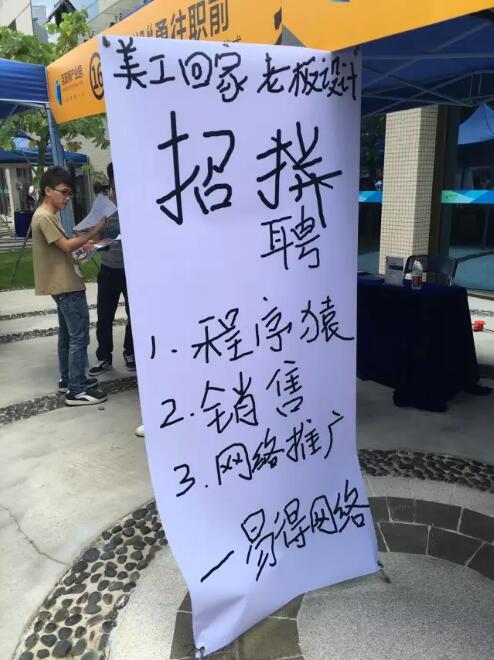 美工回家 老板设计
招
聘
1. 程序猿
2. 销售
3. 网络推广
一易得网络
16
勇往职前